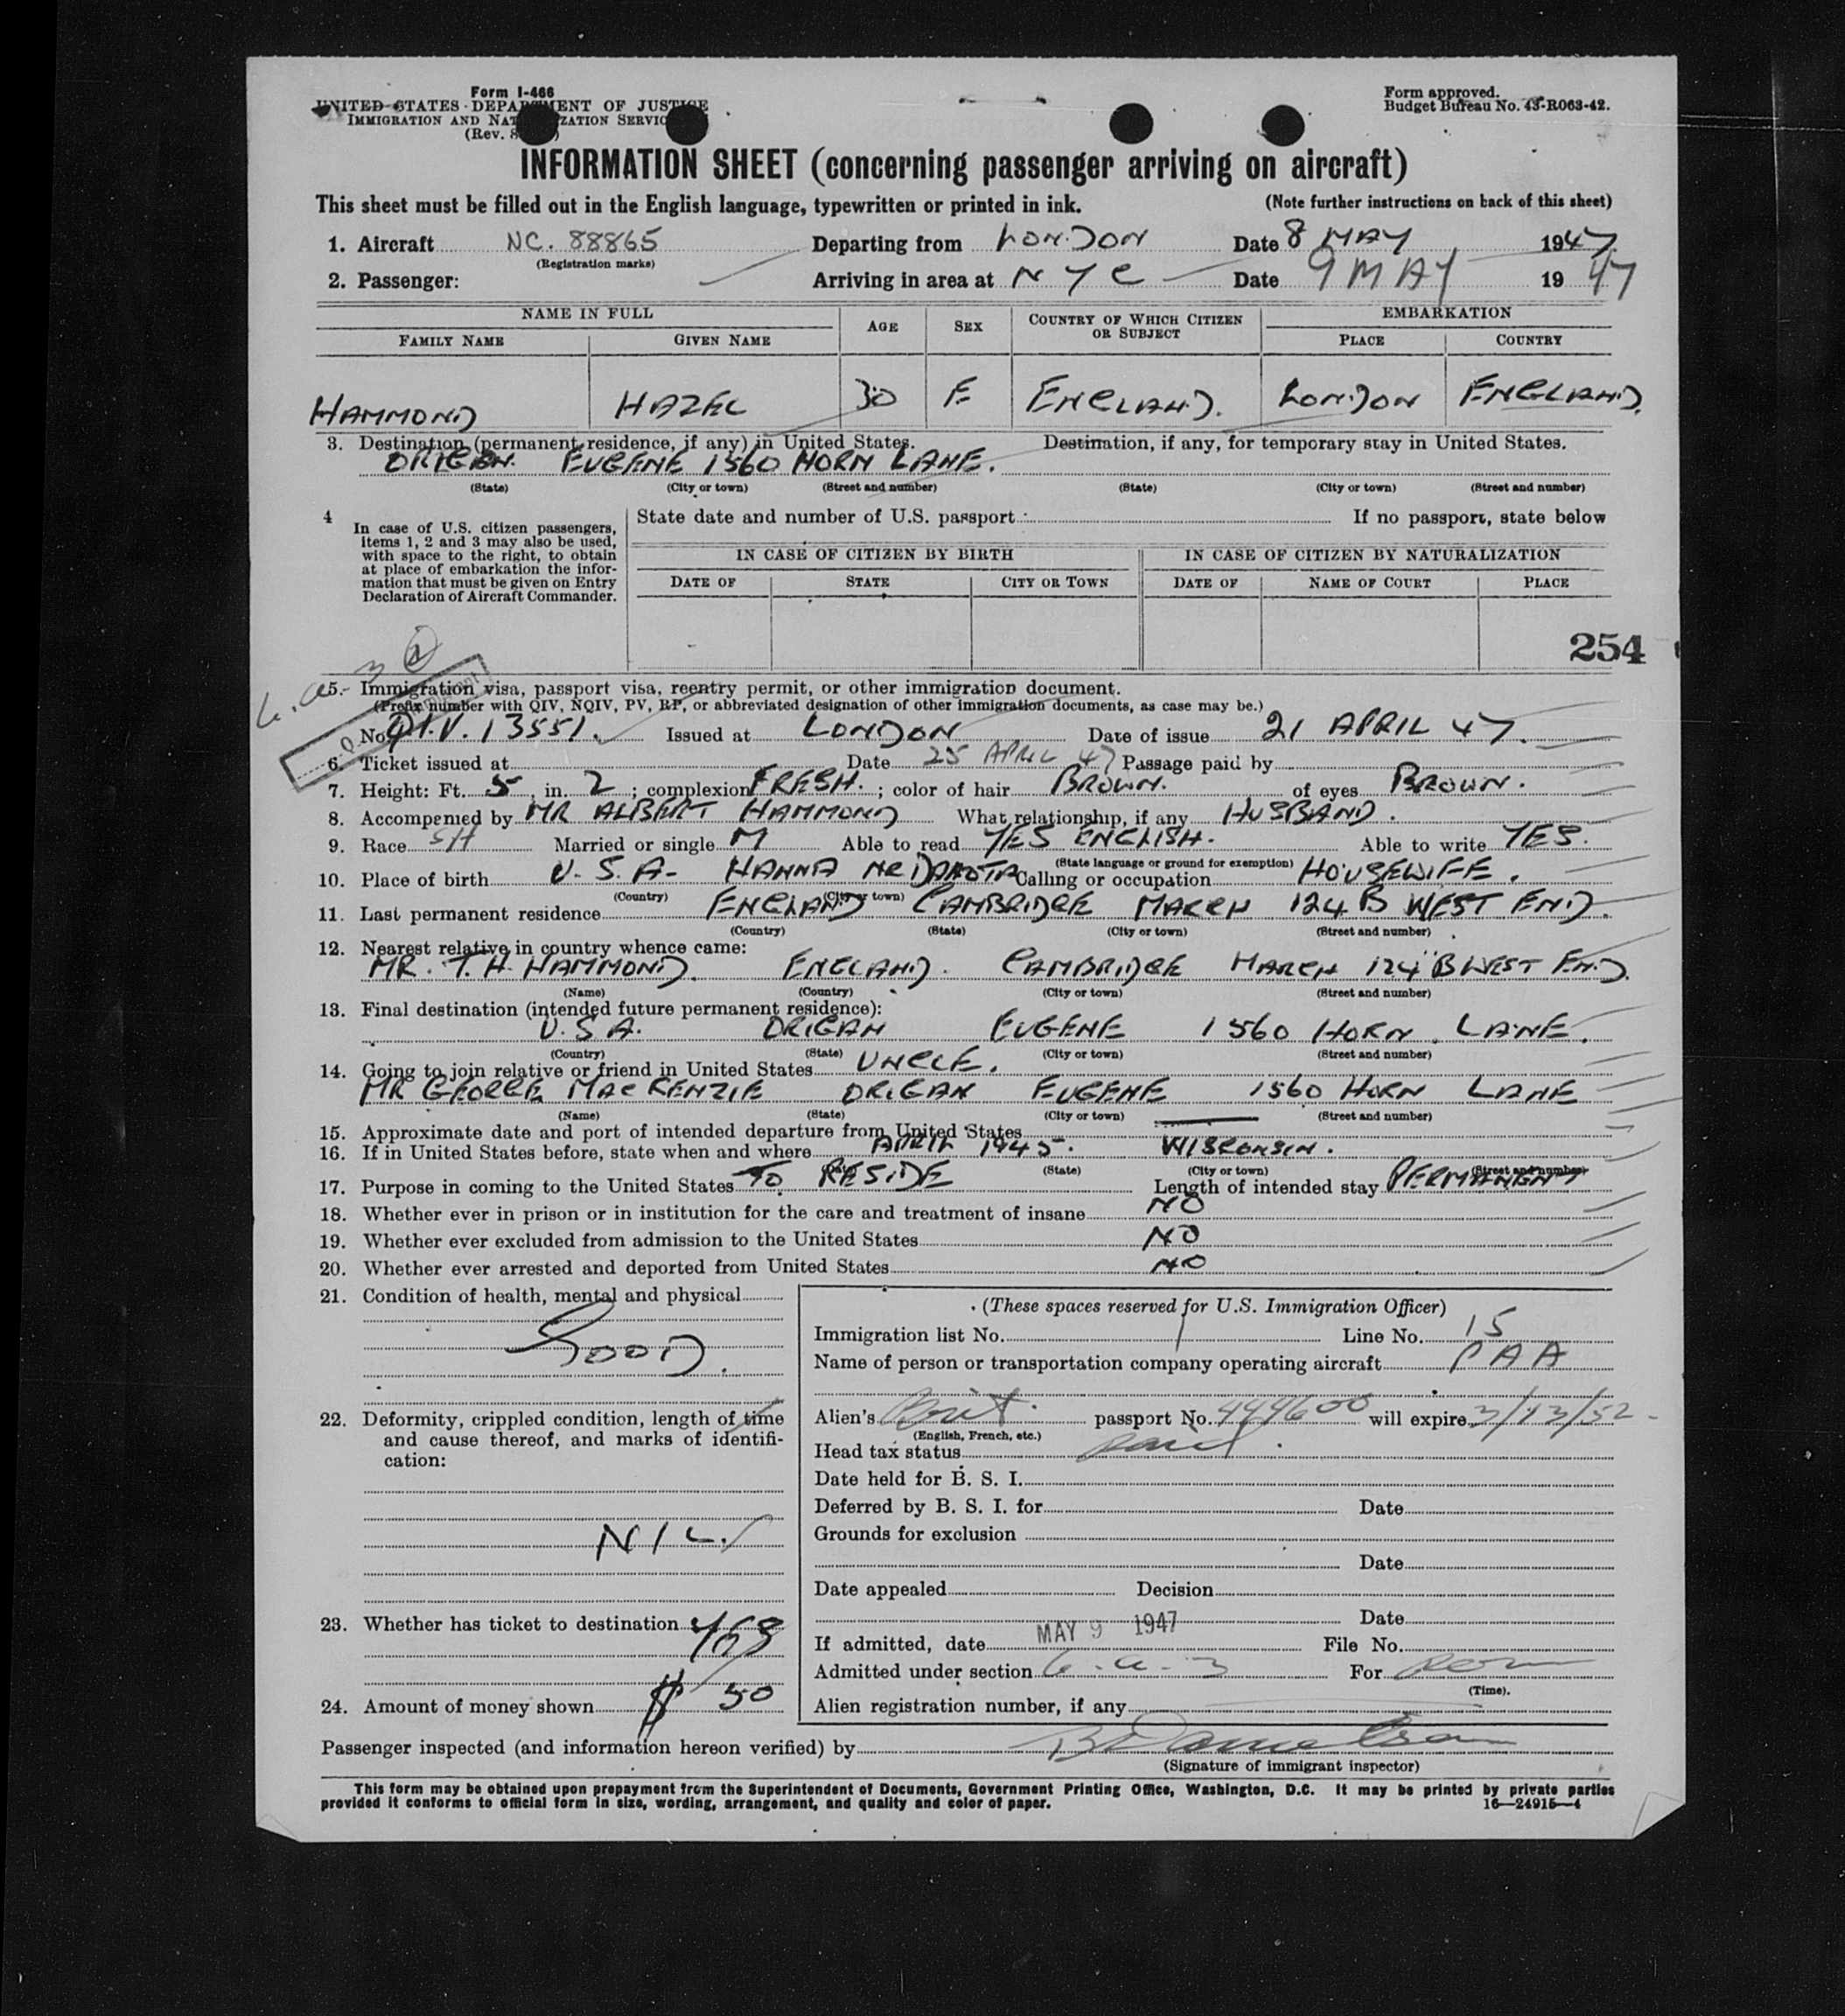 Form I-466
UNITED STATES DEPARTMENT OF JUSTICE
IMMIGRATION AND NATURALIZATION SERVICE
(Rev.
Form approved.
Budget Bureau No. 43-R063-42.
INFORMATION SHEET (concerning passenger arriving on aircraft)
This sheet must be filled out in the English language, typewritten or printed in ink. (Note further instructions on back of this sheet)
1. Aircraft NC. 88865 Departing from LONDON Date 8 MAY 1947
(Registration marks)
2. Passenger: Arriving in area at NYC Date 9 MAY 1947
NAME IN FULL AGE SEX COUNTRY OF WHICH CITIZEN OR SUBJECT EMBARKATION
FAMILY NAME GIVEN NAME PLACE COUNTRY
HAMMOND HAZEL 30 F. ENGLAND. LONDON ENGLAND.
3. Destination (permanent residence, if any) in United States. Destination, if any, for temporary stay in United States.
ORIGEN. EUGENE 1560 HORN LANE.
(State) (City or town) (Street and number) (State) (City or town) (Street and number)
4 In case of U.S. citizen passengers, items 1, 2 and 3 may also be used, with space to the right, to obtain at place of embarkation the information that must be given on Entry Declaration of Aircraft Commander.
State date and number of U.S. passport If no passport, state below
IN CASE OF CITIZEN BY BIRTH IN CASE OF CITIZEN BY NATURALIZATION
DATE OF STATE CITY OR TOWN DATE OF NAME OF COURT PLACE
254
5. Immigration visa, passport visa, reentry permit, or other immigration document.
(Prefix number with QIV, NQIV, PV, RP, or abbreviated designation of other immigration documents, as case may be.)
No. Q.I.V. 13551. Issued at LONDON Date of issue 21 APRIL 47.
6. Ticket issued at Date 25 APRIL 47 Passage paid by
7. Height: Ft. 5, in. 2; complexion FRESH.; color of hair BROWN. of eyes BROWN.
8. Accompanied by MR ALBERT HAMMOND What relationship, if any HUSBAND.
9. Race Married or single M Able to read YES ENGLISH. Able to write YES.
(State language or ground for exemption)
10. Place of birth U.S.A. HANNA NR DAKOTA Calling or occupation HOUSEWIFE.
(Country) (City or town)
11. Last permanent residence ENGLAND CAMBRIDGE MARCH 124 B WEST END.
(Country) (State) (City or town) (Street and number)
12. Nearest relative in country whence came:
MR. T.H. HAMMOND. ENGLAND. CAMBRIDGE MARCH 124 B WEST END.
(Name) (Country) (City or town) (Street and number)
13. Final destination (intended future permanent residence):
U.S.A. ORIGAN EUGENE 1560 HORN LANE.
(Country) (State) (City or town) (Street and number)
14. Going to join relative or friend in United States UNCLE.
MR GEORGE MACKENZIE ORIGAN EUGENE 1560 HORN LANE
(Name) (State) (City or town) (Street and number)
15. Approximate date and port of intended departure from United States
16. If in United States before, state when and where APRIL 1945. WISCONSIN.
(State) (City or town) (Street and number)
17. Purpose in coming to the United States TO RESIDE Length of intended stay PERMANENT
18. Whether ever in prison or in institution for the care and treatment of insane NO
19. Whether ever excluded from admission to the United States NO
20. Whether ever arrested and deported from United States NO
21. Condition of health, mental and physical
GOOD.
22. Deformity, crippled condition, length of time and cause thereof, and marks of identification:
NIL.
23. Whether has ticket to destination
24. Amount of money shown $ 50
(These spaces reserved for U.S. Immigration Officer)
Immigration list No. 1 Line No. 15
Name of person or transportation company operating aircraft PAA
Alien's Brit. passport No. 444600 will expire 3/13/52
(English, French, etc.)
Head tax status paid.
Date held for B. S. I.
Deferred by B. S. I. for Date
Grounds for exclusion
Date
Date appealed Decision
Date
If admitted, date MAY 9 1947 File No.
Admitted under section 6.a.3 For
(Time).
Alien registration number, if any
Passenger inspected (and information hereon verified) by
(Signature of immigrant inspector)
This form may be obtained upon prepayment from the Superintendent of Documents, Government Printing Office, Washington, D.C. It may be printed by private parties
provided it conforms to official form in size, wording, arrangement, and quality and color of paper. 16—24915-4